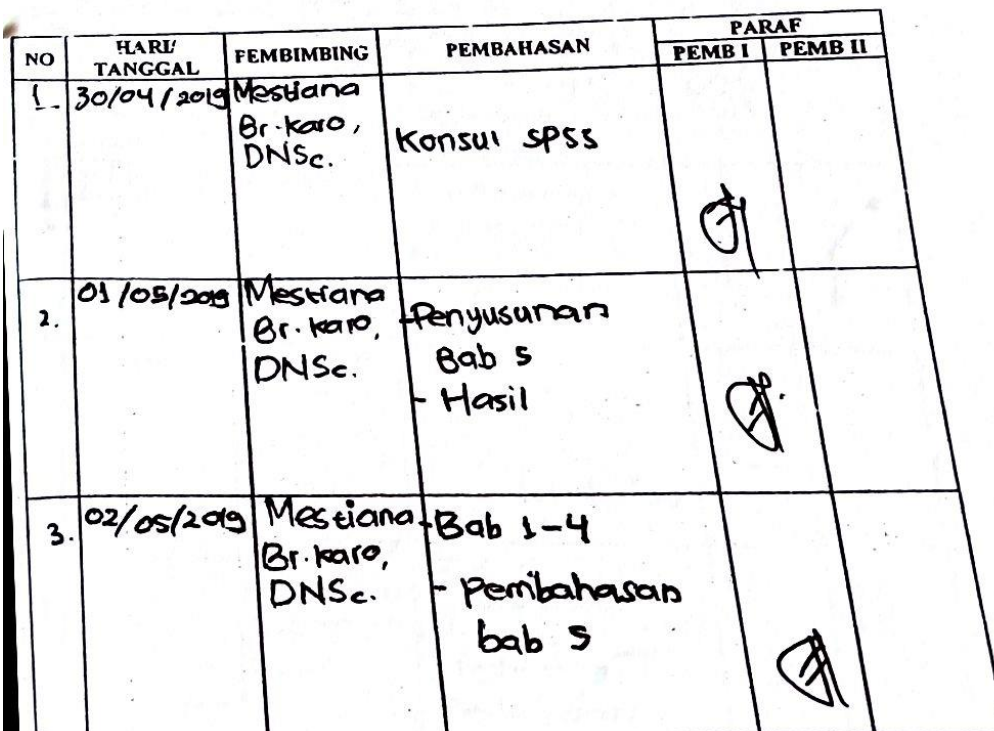 NO HARI/ TANGGAL PEMBIMBING PEMBAHASAN PARAF
PEMB I PEMB II
1. 30/04/2019 Mestiana
Br. Karo,
DNSc.
Konsul SPSS
2. 01/05/2019 Mestiana
Br. Karo,
DNSc.
- Penyusunan
Bab 5
- Hasil
3. 02/05/2019 Mestiana
Br. Karo,
DNSc.
- Bab 1-4
- Pembahasan
bab 5